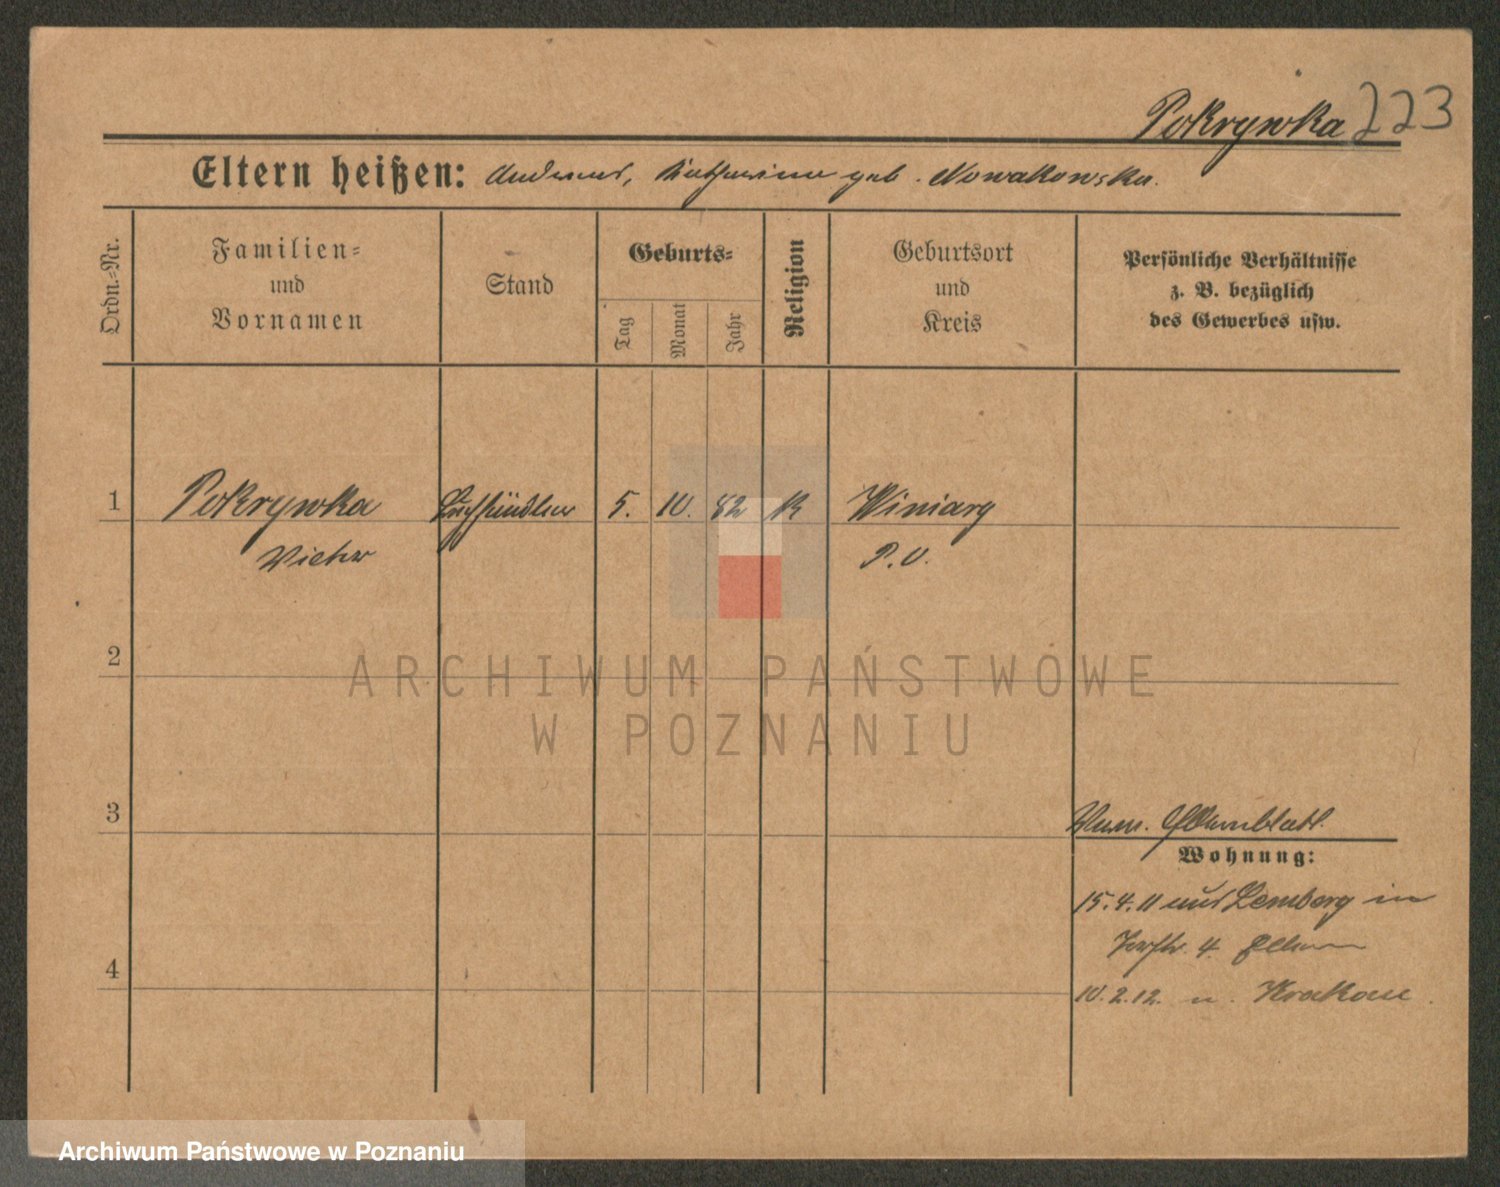 Pokrywka 223
Eltern heißen: Andreas, Katharina geb. Nowakowska.
Ordn.-Nr.
Familien-
und
Vornamen
Stand
Geburts-
Tag
Monat
Jahr
Religion
Geburtsort
und
Kreis
Persönliche Verhältnisse
z. B. bezüglich
des Gewerbes usw.
1 Pokrywka Buchhändler 5. 10. 82 K Winiary
Victor P. O.
2
ARCHIWUM PAŃSTWOWE
W POZNANIU
3
Elternblatt.
Wohnung:
15.4.11 aus Lemberg in
4. Eltern
4
10.2.12. n. Krakau.
Archiwum Państwowe w Poznaniu